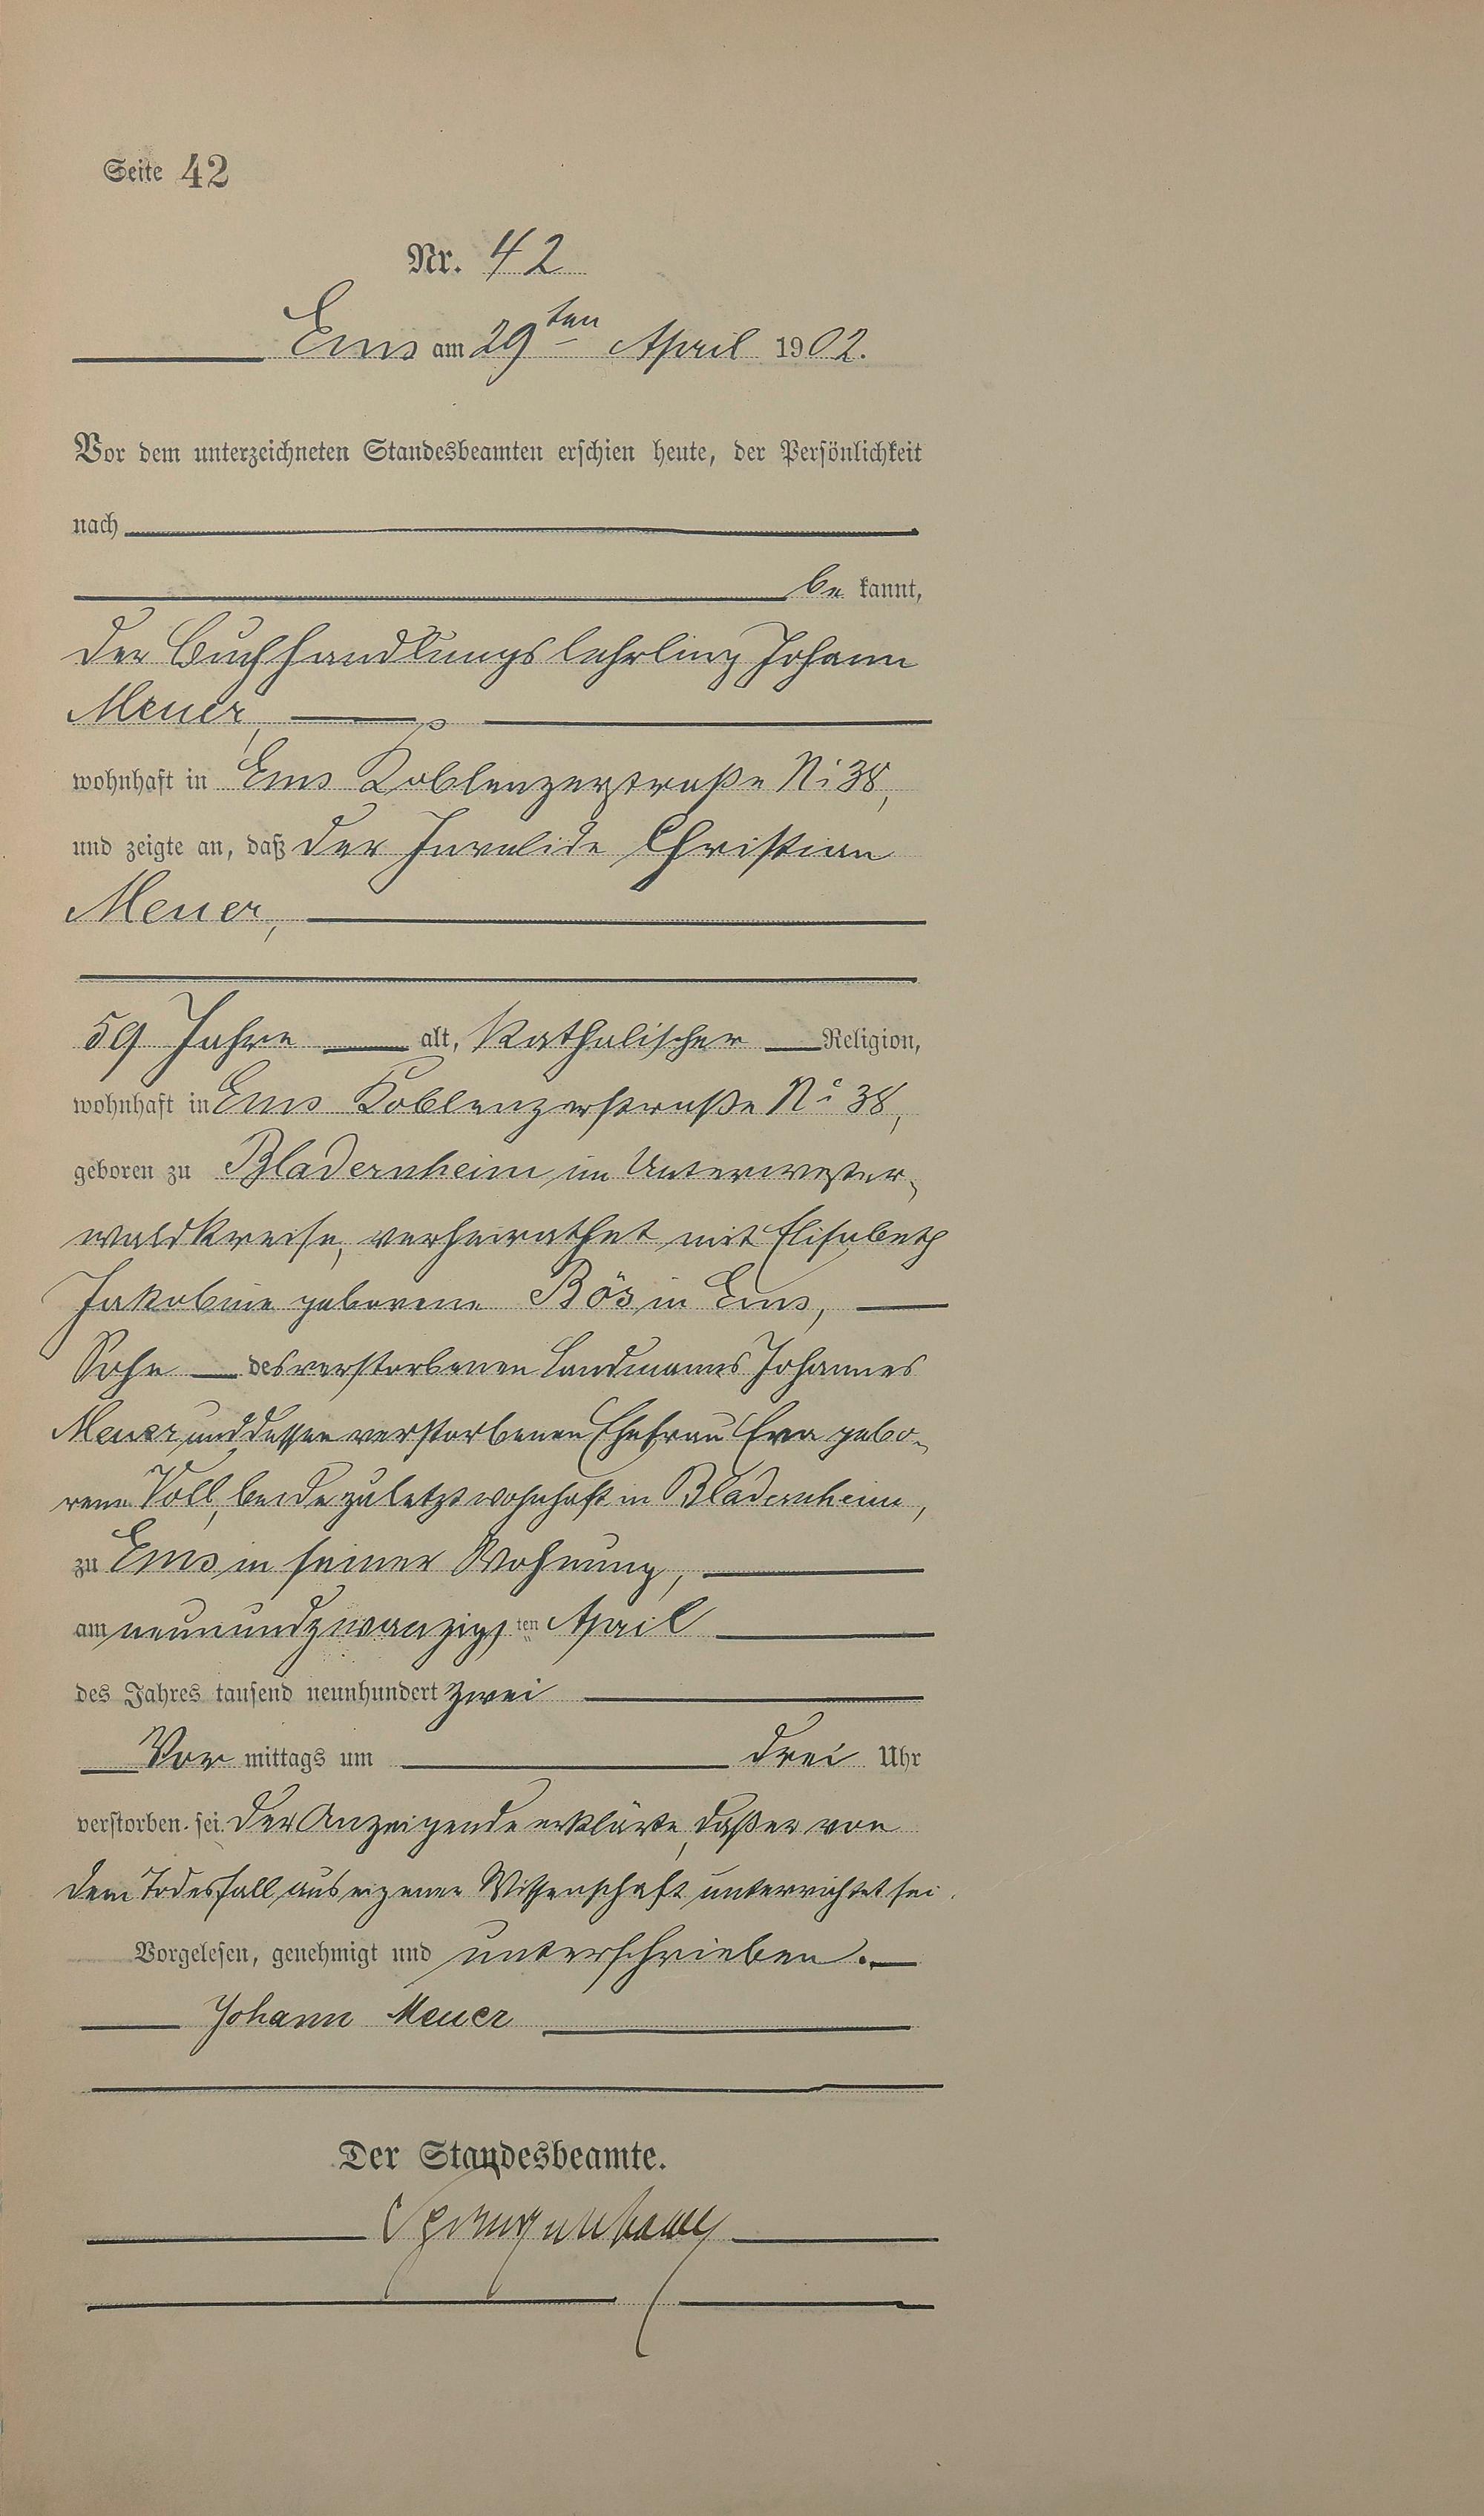 Seite 42
Nr. 42
Ems am 29ten April 1902.
Vor dem unterzeichneten Standesbeamten erschien heute, der Persönlichkeit
nach
be kannt,
der Buchhandlungslehrling Johann
Meuer,
wohnhaft in Ems Koblenzerstraße No 38,
und zeigte an, daß der Invalide Christian
Meuer,
59 Jahre alt, katholischer Religion,
wohnhaft in Ems Koblenzerstraße No 38,
geboren zu Bladernheim im Unterwester-
waldkreise, verheirathet mit Elisabeth
Jakobine geborene Bös in Ems,
Sohn des verstorbenen Landmanns Johannes
Meuer und dessen verstorbenen Ehefrau Eva gebo-
rene Voll, beide zuletzt wohnhaft in Bladernheim,
zu Ems in seiner Wohnung,
am neunundzwanzigsten April
des Jahres tausend neunhundert zwei
Vor mittags um drei Uhr
verstorben sei. Der Anzeigende erklärte, daß er von
dem Todesfall aus eigener Wissenschaft unterrichtet sei.
Vorgelesen, genehmigt und unterschrieben.
Johann Meuer
Der Standesbeamte.